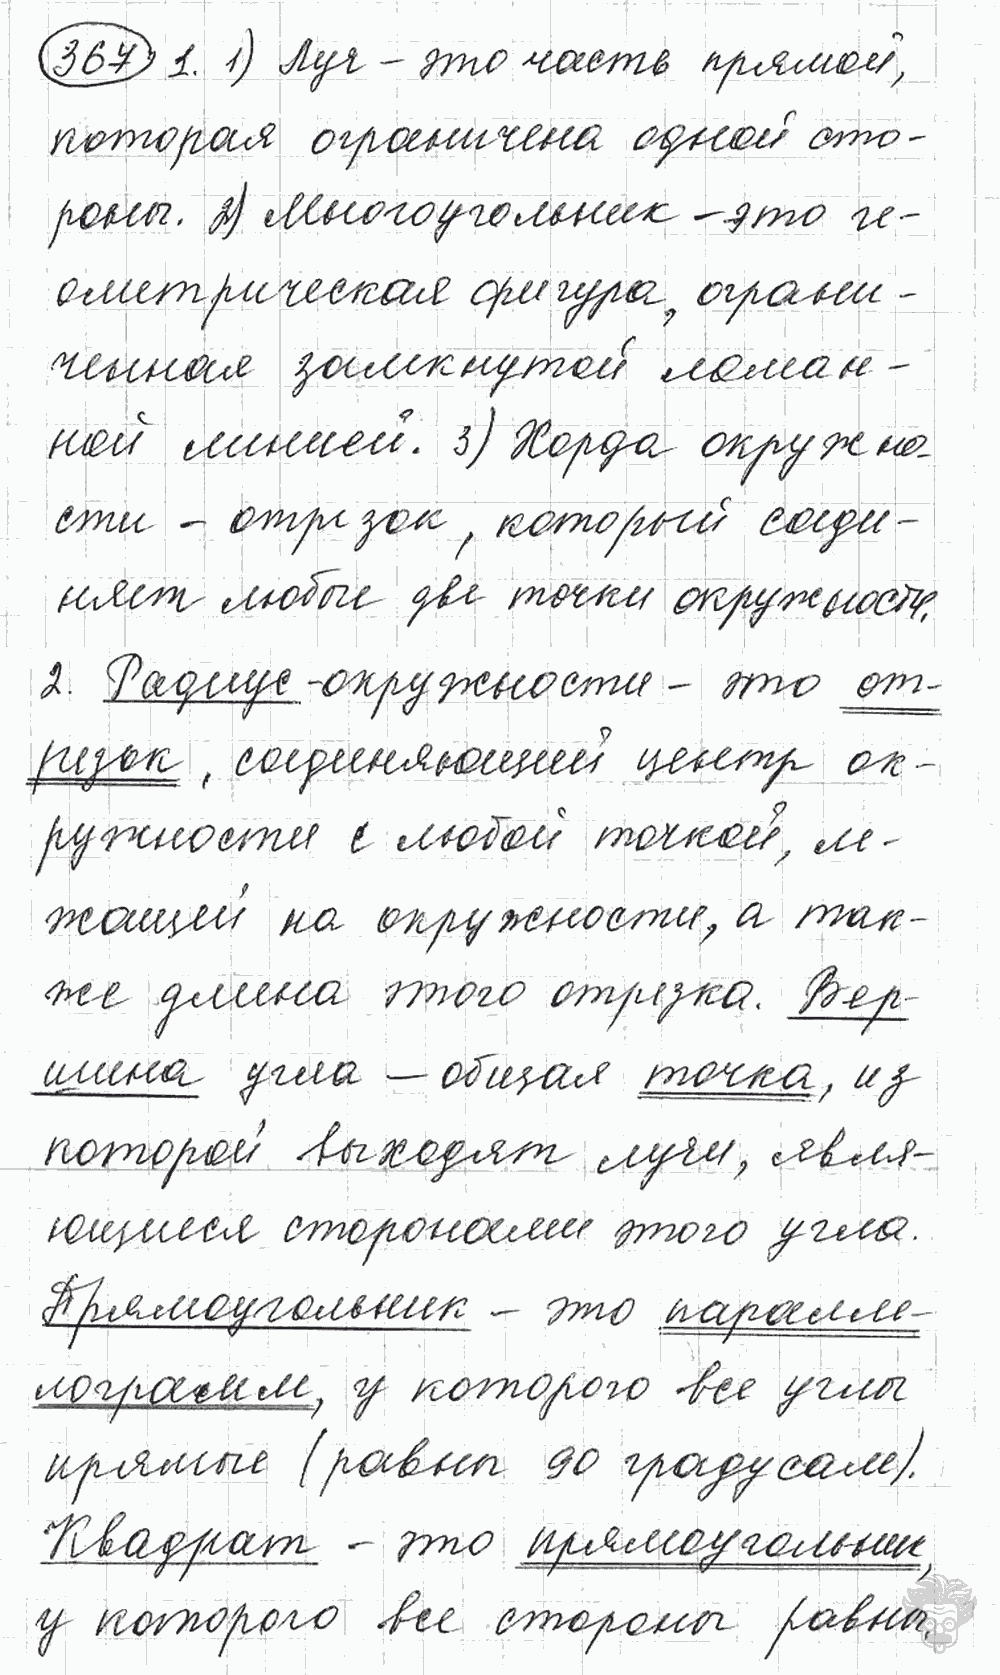 367. 1. 1) Луч – это часть прямой,
которая ограничена одной сто-
роны. 2) Многоугольник – это ге-
ометрическая фигура, ограни-
ченная замкнутой ломан-
ной линией. 3) Хорда окружно-
сти – отрезок, который соеди-
няет любые две точки окружности.
2. Радиус-окружности – это от-
резок, соединяющий центр ок-
ружности с любой точкой, ле-
жащей на окружности, а так-
же длина этого отрезка. Вер-
шина угла – общая точка, из
которой выходят лучи, явля-
ющиеся сторонами этого угла.
Прямоугольник – это паралле-
лограмм, у которого все углы
прямые (равны 90 градусам).
Квадрат – это прямоугольник,
у которого все стороны равны.